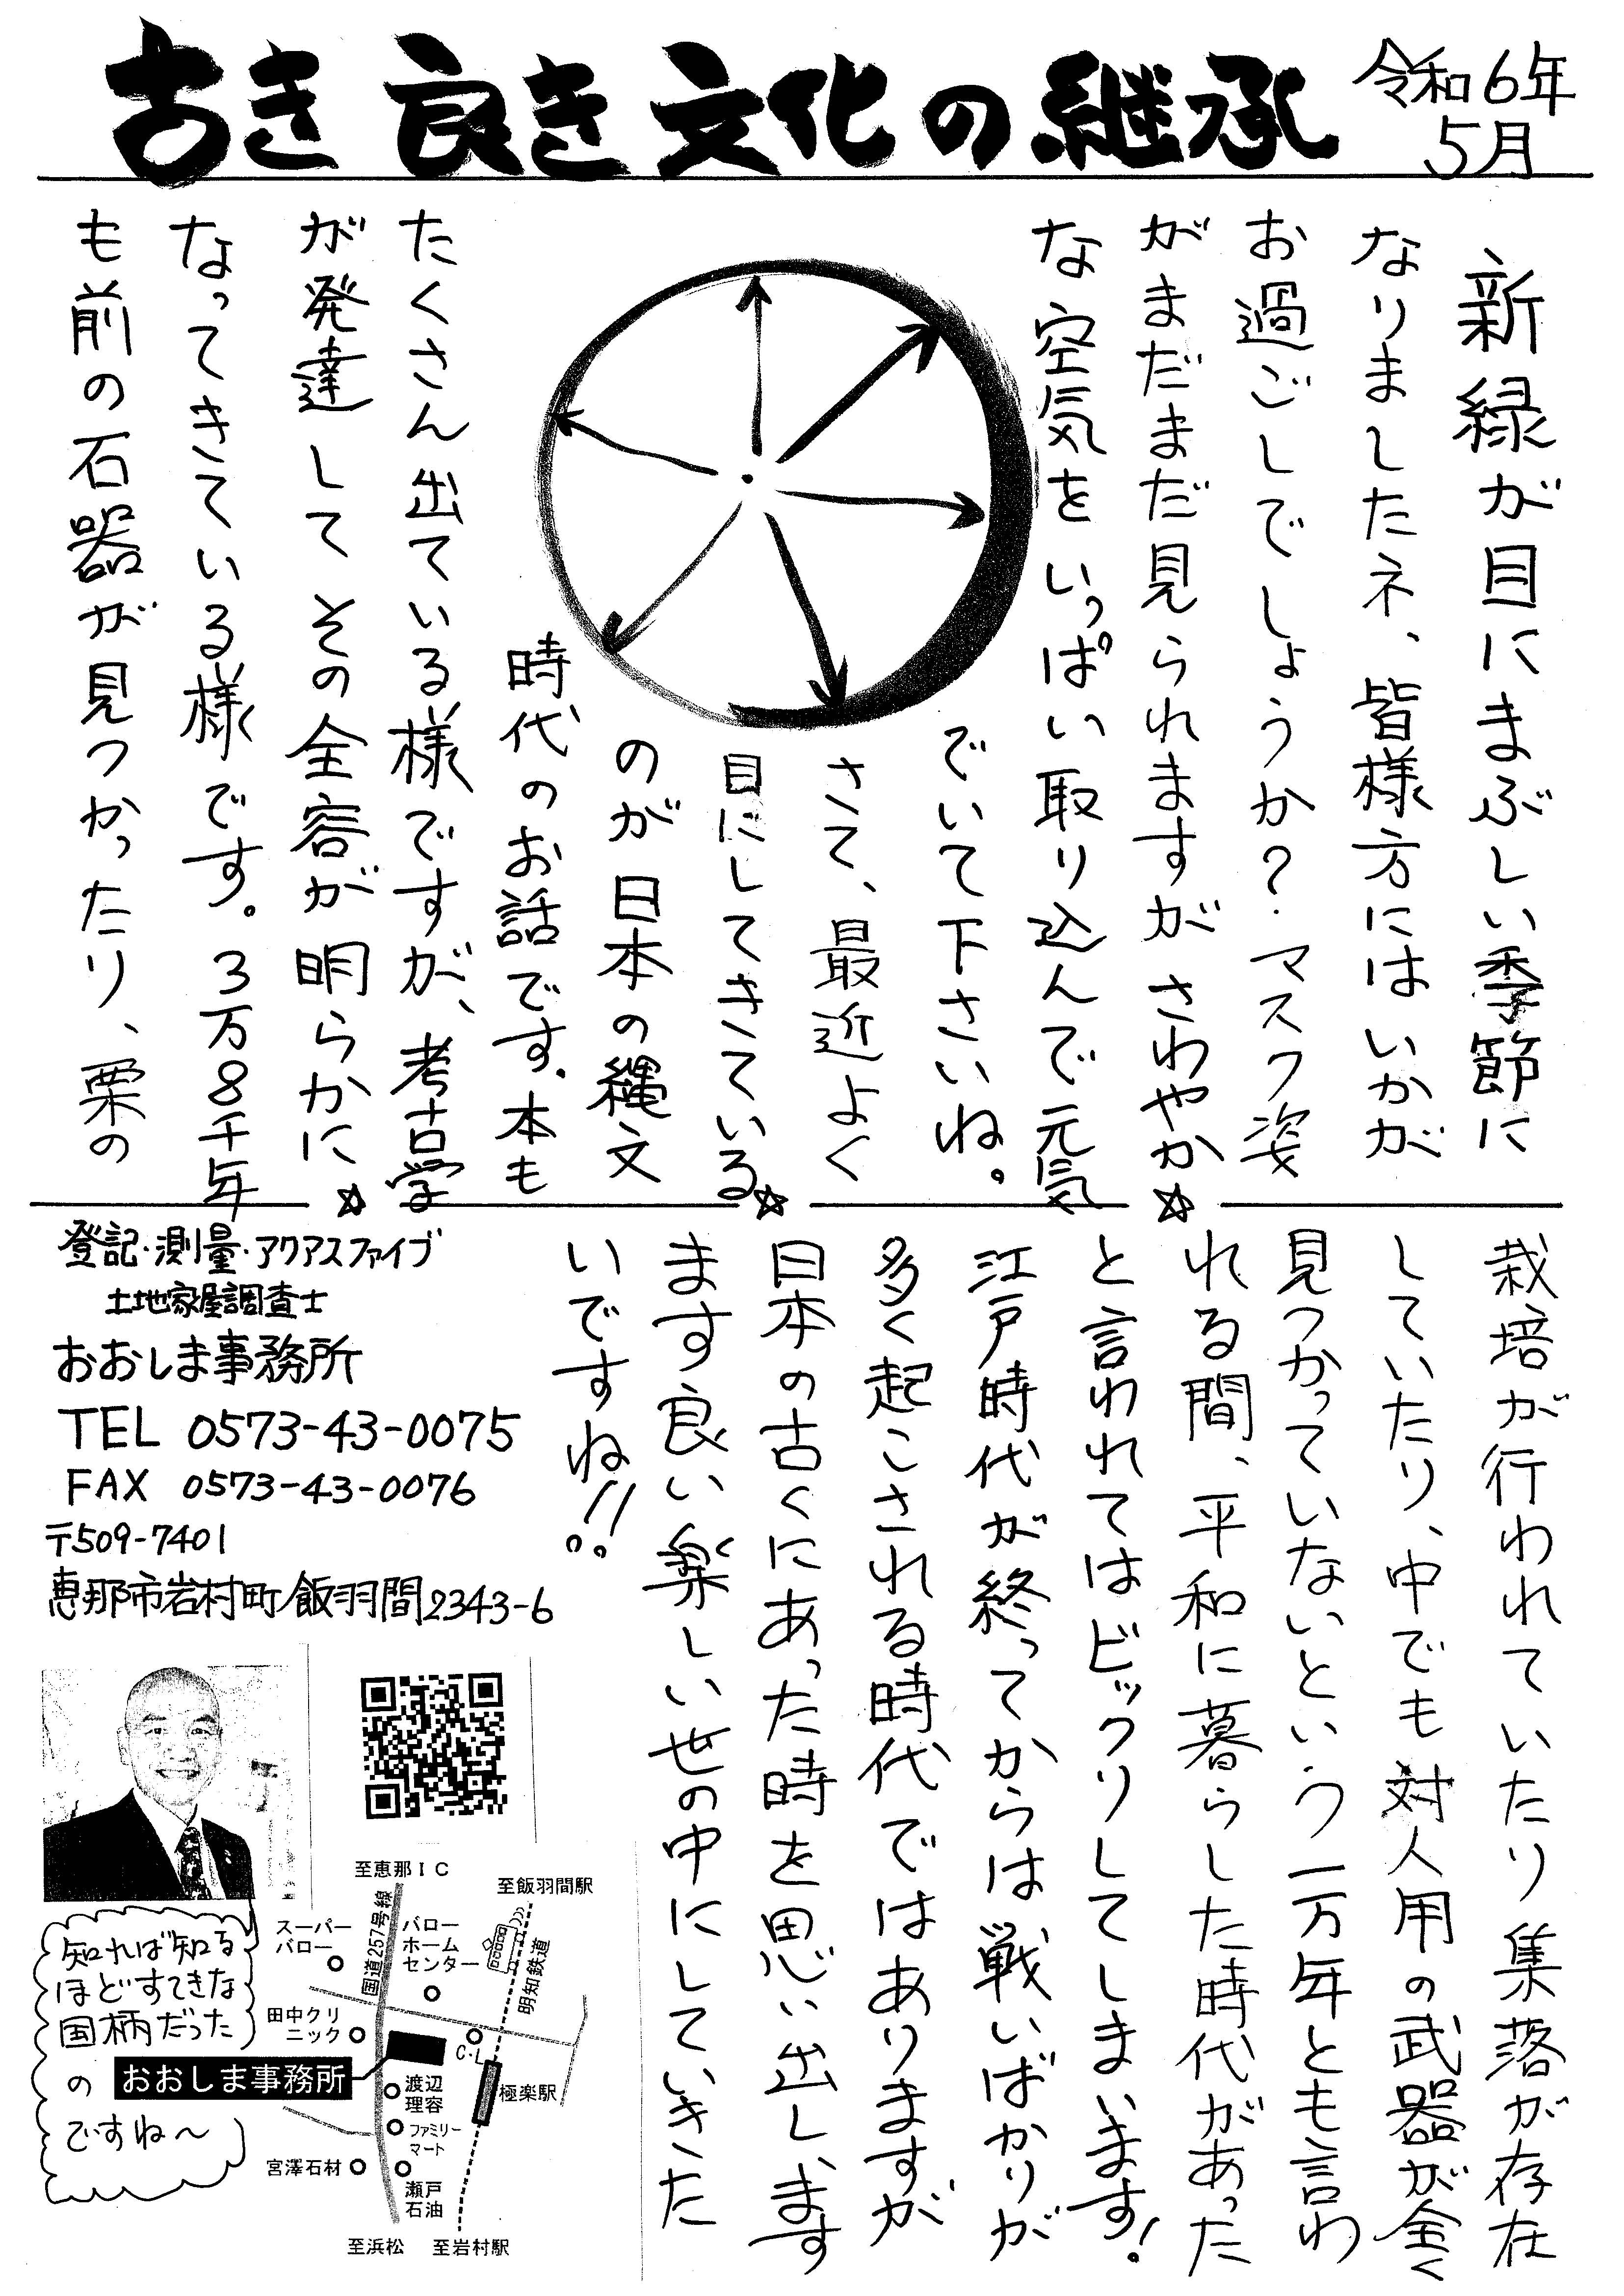 古き良き文化の継承
令和6年
5月
新緑が目にまぶしい季節に
なりましたネ、皆様方にはいかが
お過ごしでしょうか？マスク姿
がまだまだ見られますが さわやか
な空気をいっぱい取り込んで元気
でいて下さいね。
さて、最近よく
目にしてきている
のが日本の縄文
時代のお話です。本も
たくさん出ている様ですが、考古学
が発達してその全容が明らかに
なってきている様です。3万8千年
も前の石器が見つかったり、栗の
栽培が行われていたり集落が存在
していたり、中でも対人用の武器が全く
見つかっていないという一万年とも言わ
れる間、平和に暮らした時代があった
と言われてはビックリしてしまいます！
江戸時代が終ってからは戦いばかりが
多く起こされる時代ではありますが
日本の古くにあった時を思い出し、ます
ます良い楽しい世の中にしていきた
いですね!!
登記・測量・アクアスファイブ
土地家屋調査士
おおしま事務所
TEL 0573-43-0075
FAX 0573-43-0076
〒509-7401
恵那市岩村町飯羽間2343-6
知れば知る
ほどすてきな
国柄だった
の
ですね〜
至恵那IC
至飯羽間駅
国道257号線
スーパー
バロー
バロー
ホーム
センター
明知鉄道
田中クリ
ニック
C・L
おおしま事務所
渡辺
理容
極楽駅
ファミリー
マート
宮澤石材
瀬戸
石油
至浜松
至岩村駅